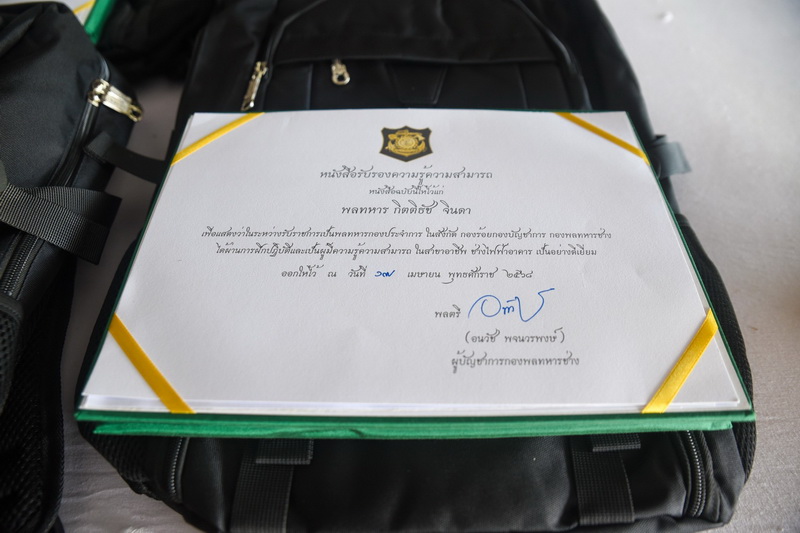 หนังสือรับรองความรู้ความสามารถ
หนังสือฉบับนี้ให้ไว้แก่
พลทหาร กิตติธัช จินดา
เพื่อแสดงว่าในระหว่างรับราชการเป็นพลทหารกองประจำการ ในสังกัด กองร้อยกองบัญชาการ กองพลทหารช่าง
ได้ผ่านการฝึกปฏิบัติและเป็นผู้มีความรู้ความสามารถ ในสาขาอาชีพ ช่างไฟฟ้าอาคาร เป็นอย่างดีเยี่ยม
ออกให้ไว้ ณ วันที่ ๑๗ เมษายน พุทธศักราช ๒๕๖๘
พลตรี
(อนวัช พจนวรพงษ์)
ผู้บัญชาการกองพลทหารช่าง